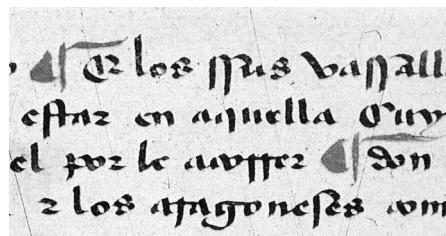 ¶ Et los ssus vassall
estar en aquella
el por le
¶ don
τ los aragoneses com